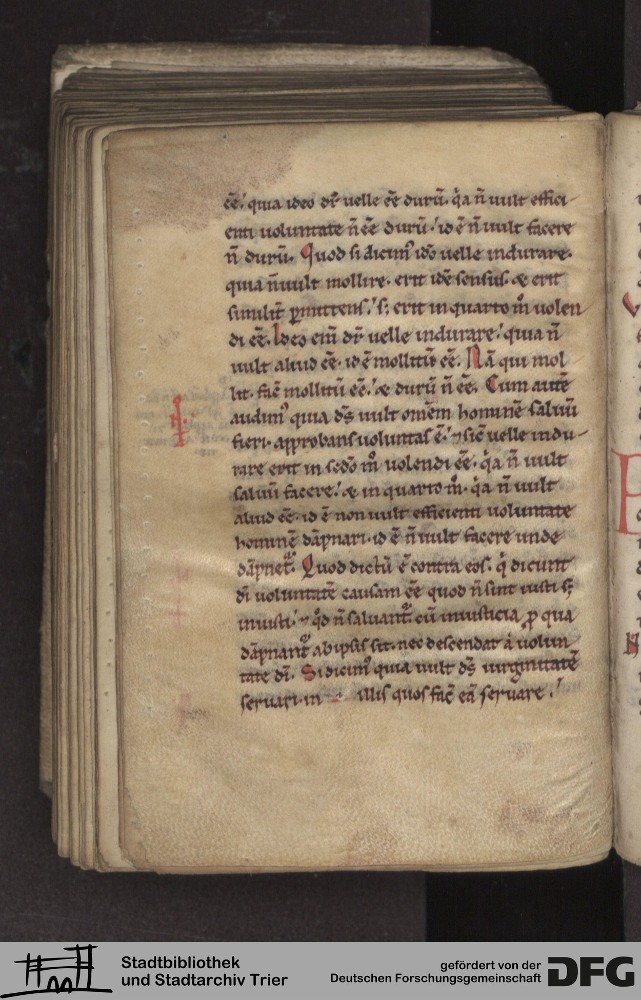 eē. quia ideo dr̄ uelle eē durū. q̇a n̄ uult effici-
enti uoluntate n̄ eē durū. id ē n̄ uult facere
n̄ durū. Quod si dicim᷒ ido uelle indurare.
quia n̄ uult mollire. erit idē sensus. & erit
similit̄ p̱mittens. s; erit in quarto m̊ uolen
di eē. Ideo eni̅ dr̄ uelle indurare. quia n̄
uult aliud eē. id ē mollitū eē. Nā qui mol
lit. fac̄ mollitū eē. & durū n̄ eē. Cum autē
audim᷒ quia dſ̄ uult omēm hominē saluū
fieri. approbans uoluntas ē. ⁊ sic̄ uelle indu-
rare erit in sc̄do m̊ uolendi eē. q̇a n̄ uult
saluū facere. & in quarto m̊. q̇a n̄ uult
aliud eē. id ē non uult efficienti uoluntate
hominē dāpnari. id ē n̄ uult facere unde
dāpnet᷑. Quod dictū ē contra eos. q̇ dicunt
di̅ uoluntatē causam eē quod n̄ sint iusti s;
iniusti. ⁊ qd̄ n̄ saluant᷑. cū iniusticia p̱ qua
dāpnant᷑ ab ipsis sit. nec descendat á uolun
tate di̅. Si dicim᷒ quia uult dſ̄ uirginitatē
seruari. in illis quos fac̄ eā seruare.
Stadtbibliothek
und Stadtarchiv Trier
gefördert von der
Deutschen Forschungsgemeinschaft DFG